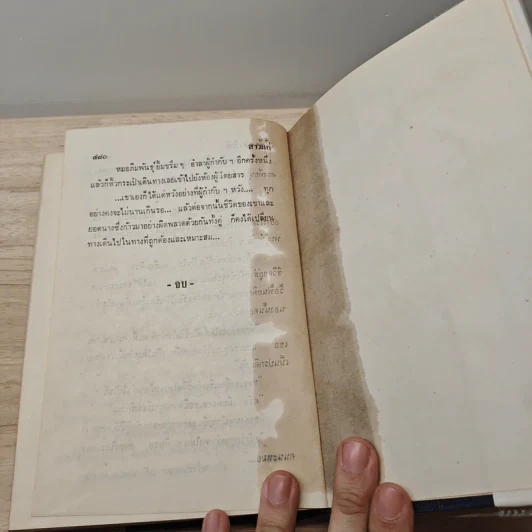 ๔๘๐
หมอภิมพันธุ์ยิ้มขรึม ๆ อำลาผู้กำกับ ๆ อีกครั้งหนึ่ง
แล้วก็หิ้วกระเป๋าเดินทางเลยเข้าไปยังห้องผู้โดยสาร
...เขาเองก็ได้แต่หวังอย่างที่ผู้กำกับ ๆ หวัง... ทุก
อย่างคงจะไม่นานเกินรอ... แล้วต่อจากนั้นชีวิตของเขาและ
ยอดนางซึ่งก้าวมาอย่างผิดพลาดด้วยกันทั้งคู่ ก็คงได้เปลี่ยน
ทางเดินไปในทางที่ถูกต้องและเหมาะสม...
- จบ -